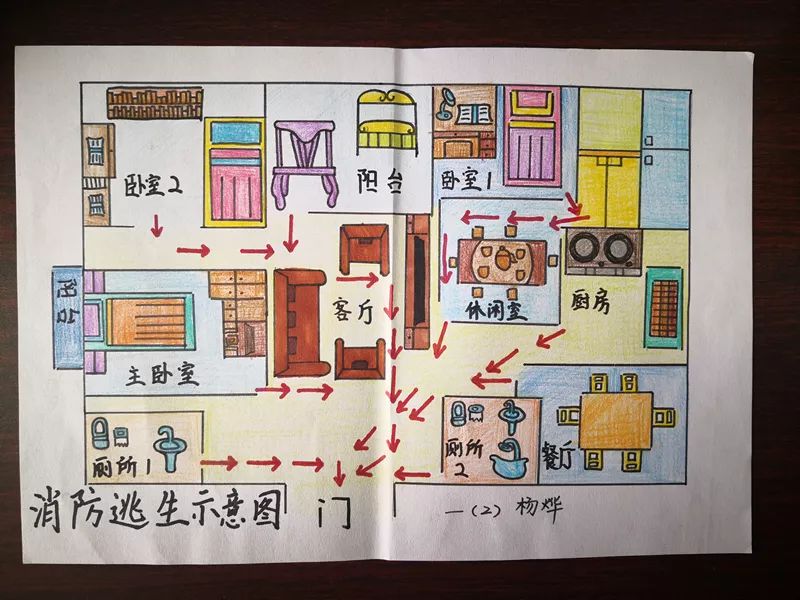 卧室2
阳台
卧室1
阳台
客厅
休闲室
厨房
主卧室
厕所1
厕所2
餐厅
消防逃生示意图
门
一(2) 杨烨